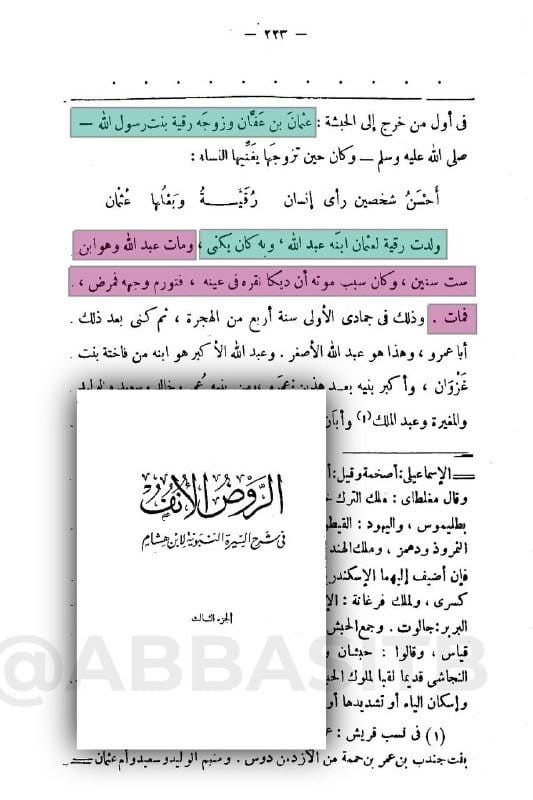 — ٢٢٣ —
فى أول من خرج إلى الحبشة : عثمانَ بن عَفَّان وزوجَه رقية بنت رسول الله —
صلى الله عليه وسلم — وكان حين تزوجها يغنِّيها النساء :
أَحْسَنُ شخصين رأى إنسان رُقَيَّةُ وبَعْلُها عثمان
ولدت رقية لعثمان ابنَه عبد الله ، وبه كان يكنى ، ومات عبد الله وهو ابن
ست سنين ، وكان سبب موته أن ديكا نقره فى عينه ، فتورم وجهه فمرض ،
فمات . وذلك فى جمادى الأولى سنة أربع من الهجرة ، ثم كنى بعد ذلك
أبا عمرو ، وهذا هو عبد الله الأصغر . وعبد الله الأكبر هو ابنه من فاختة بنت
غَزْوَان ، وأكبر بنيه بعد هذين عمرو ، ومن بنيه عُمر وخالد وسعيد والوليد
والمغيرة وعبد الملك (١) وأبان
— الإسماعيلى : أصخمة وقيل : أ
وقال مغلطاى : ملك الترك خ
بطليموس ، واليهود : القيطو
النمروذ ودهمز ، وملك الهند
فإن أضيف إليهما الإسكندر
كسرى ، ولملك فرغانة : الإ
البربر : جالوت . وجمع الحبش
قياس ، وقالوا : حبشان و
النجاشى قديما لقبا لملوك الحب
وإسكان الياء أو تشديدها أو
(١) فى نسب قريش : ع
بنت جندب بن عمر بن حممة من الأزد بن دوس . ومنهم الوليد وسعيد وأم عثمان =
الروض الأنف
فى شرح السيرة النبوية لابن هشام
الجزء الثالث
@ABBASI1B